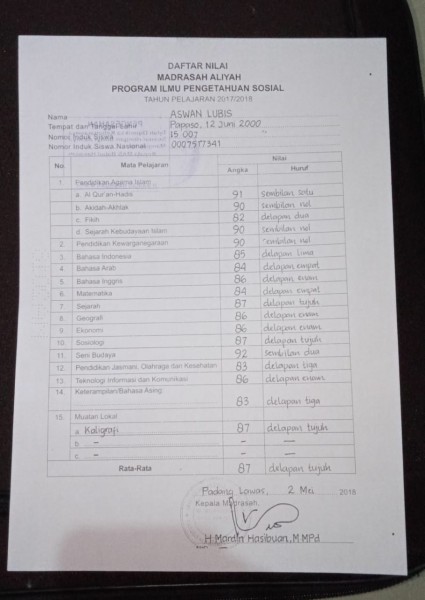 DAFTAR NILAI
MADRASAH ALIYAH
PROGRAM ILMU PENGETAHUAN SOSIAL
TAHUN PELAJARAN 2017/2018
Nama : ASWAN LUBIS
Tempat dan Tanggal Lahir : Papaso, 12 Juni 2000
Nomor Induk Siswa : 15 007
Nomor Induk Siswa Nasional : 0007577341
No. Mata Pelajaran Nilai
Angka Huruf
1. Pendidikan Agama Islam
a. Al Qur'an-Hadis 91 sembilan satu
b. Akidah-Akhlak 90 sembilan nol
c. Fikih 82 delapan dua
d. Sejarah Kebudayaan Islam 90 sembilan nol
2. Pendidikan Kewarganegaraan 90 sembilan nol
3. Bahasa Indonesia 85 delapan lima
4. Bahasa Arab 84 delapan empat
5. Bahasa Inggris 86 delapan enam
6. Matematika 84 delapan empat
7. Sejarah 87 delapan tujuh
8. Geografi 86 delapan enam
9. Ekonomi 86 delapan enam
10. Sosiologi 87 delapan tujuh
11. Seni Budaya 92 sembilan dua
12. Pendidikan Jasmani, Olahraga dan Kesehatan 83 delapan tiga
13. Teknologi Informasi dan Komunikasi 86 delapan enam
14. Keterampilan/Bahasa Asing 83 delapan tiga
15. Muatan Lokal
a. Kaligrafi 87 delapan tujuh
b. - - -
c. - - -
Rata-Rata 87 delapan tujuh
Padang Lawas, 2 Mei 2018
Kepala Madrasah,
H. Mardin Hasibuan, M.MPd